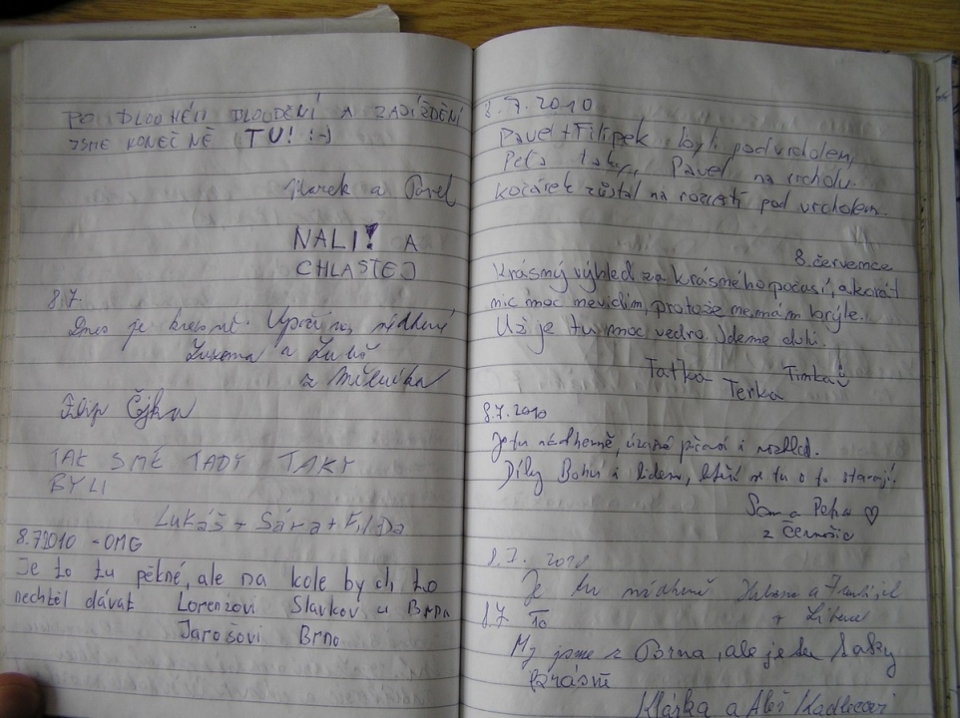 PO DLOUHÉM BLOUDĚNÍ A ZAJÍŽDĚNÍ
JSME KONEČNĚ TU! :-)
Marek a Pavel
NALI! A
CHLASTEJ
8.7.
Dnes je krásně.
Zuzana a Luboš
z Mělníka
Filip Čejka
TAK SME TADY TAKY
BYLI
Lukáš + Sára +
8.7 2010 - OMG
Je to tu pěkné, ale na kole bych to
nechtěl dávat Lorenzovi Slavkov u Brna
Jarošovi Brno
8.7.2010
Pavel + Filípek byli pod vrcholem,
Peťa taky, Pavel na vrcholu.
kočárek zůstal na rozcestí pod vrcholem.
8. července
Krásný výhled za krásného počasí, akorát
nic moc nevidím, protože nemám brýle.
Už je tu moc vedro. Jdeme dolů.
Taťka Terka Timka
8.7.2010
Je tu nádherně, úžasná příroda i rozhled.
Díky Bohu i lidem, kteří se tu o to starají!
Petra ♡
z Černošic
8.7. 2010
Je tu nádherně
8.7 10
My jsme z Brna, ale je tu taky
krásně
Klárka a Aleš Kadlecovi